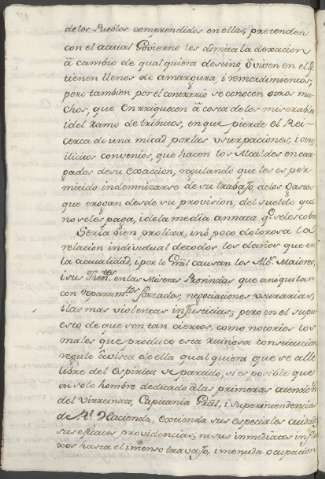 de los Pueblos comprendidos en ellas, pretenden
con el actual Govierno les admita la dexacion
á cambio de qualquiera destino, ó viven en el q.e
tienen llenos de amargura, i remordimientos,
pero tambien por el contrario se conocen otros mu-
chos, que Enriquecen á costa de los miserables
i del ramo de tributos, en que pierde el Rei
cerca de una mitad por las usurpaciones, i con
ilicitos convenios, que hacen los Alcaldes encar-
gados de su Exaccion, regulando que les es per-
mitido indemnizarse de su trabajo, de los Gastos
que erogan desde su provision, del sueldo que
no se les paga, i de la media annata q.e se les cobra
Seria bien prolixa, i no poco dolorosa la
relacion individual de todos los daños que en
la actualidad, i por lo Gral causan los Al.s Maiores,
i sus Then.tes en las Miseras Provincias que aniquilan
con repartim.tos forzados, negociaciones usurarias,
i las mas violentas injusticias; pero en el supu-
esto de que son tan ciertos, como notorios los
males que produce esta ruinosa constitucion
regule ó visva de ella qual quiera que se alle
libre del espiritu de partido, si es posible que
un solo hombre dedicado á las primeras atenciones
del Virreinato, Capitania Gral, i Superintendencia
de R.l Hacienda,
sus eficaces providencias, ni sus inmediatos influ-
xos hasta el inmenso trabajo, i menuda ocupacion